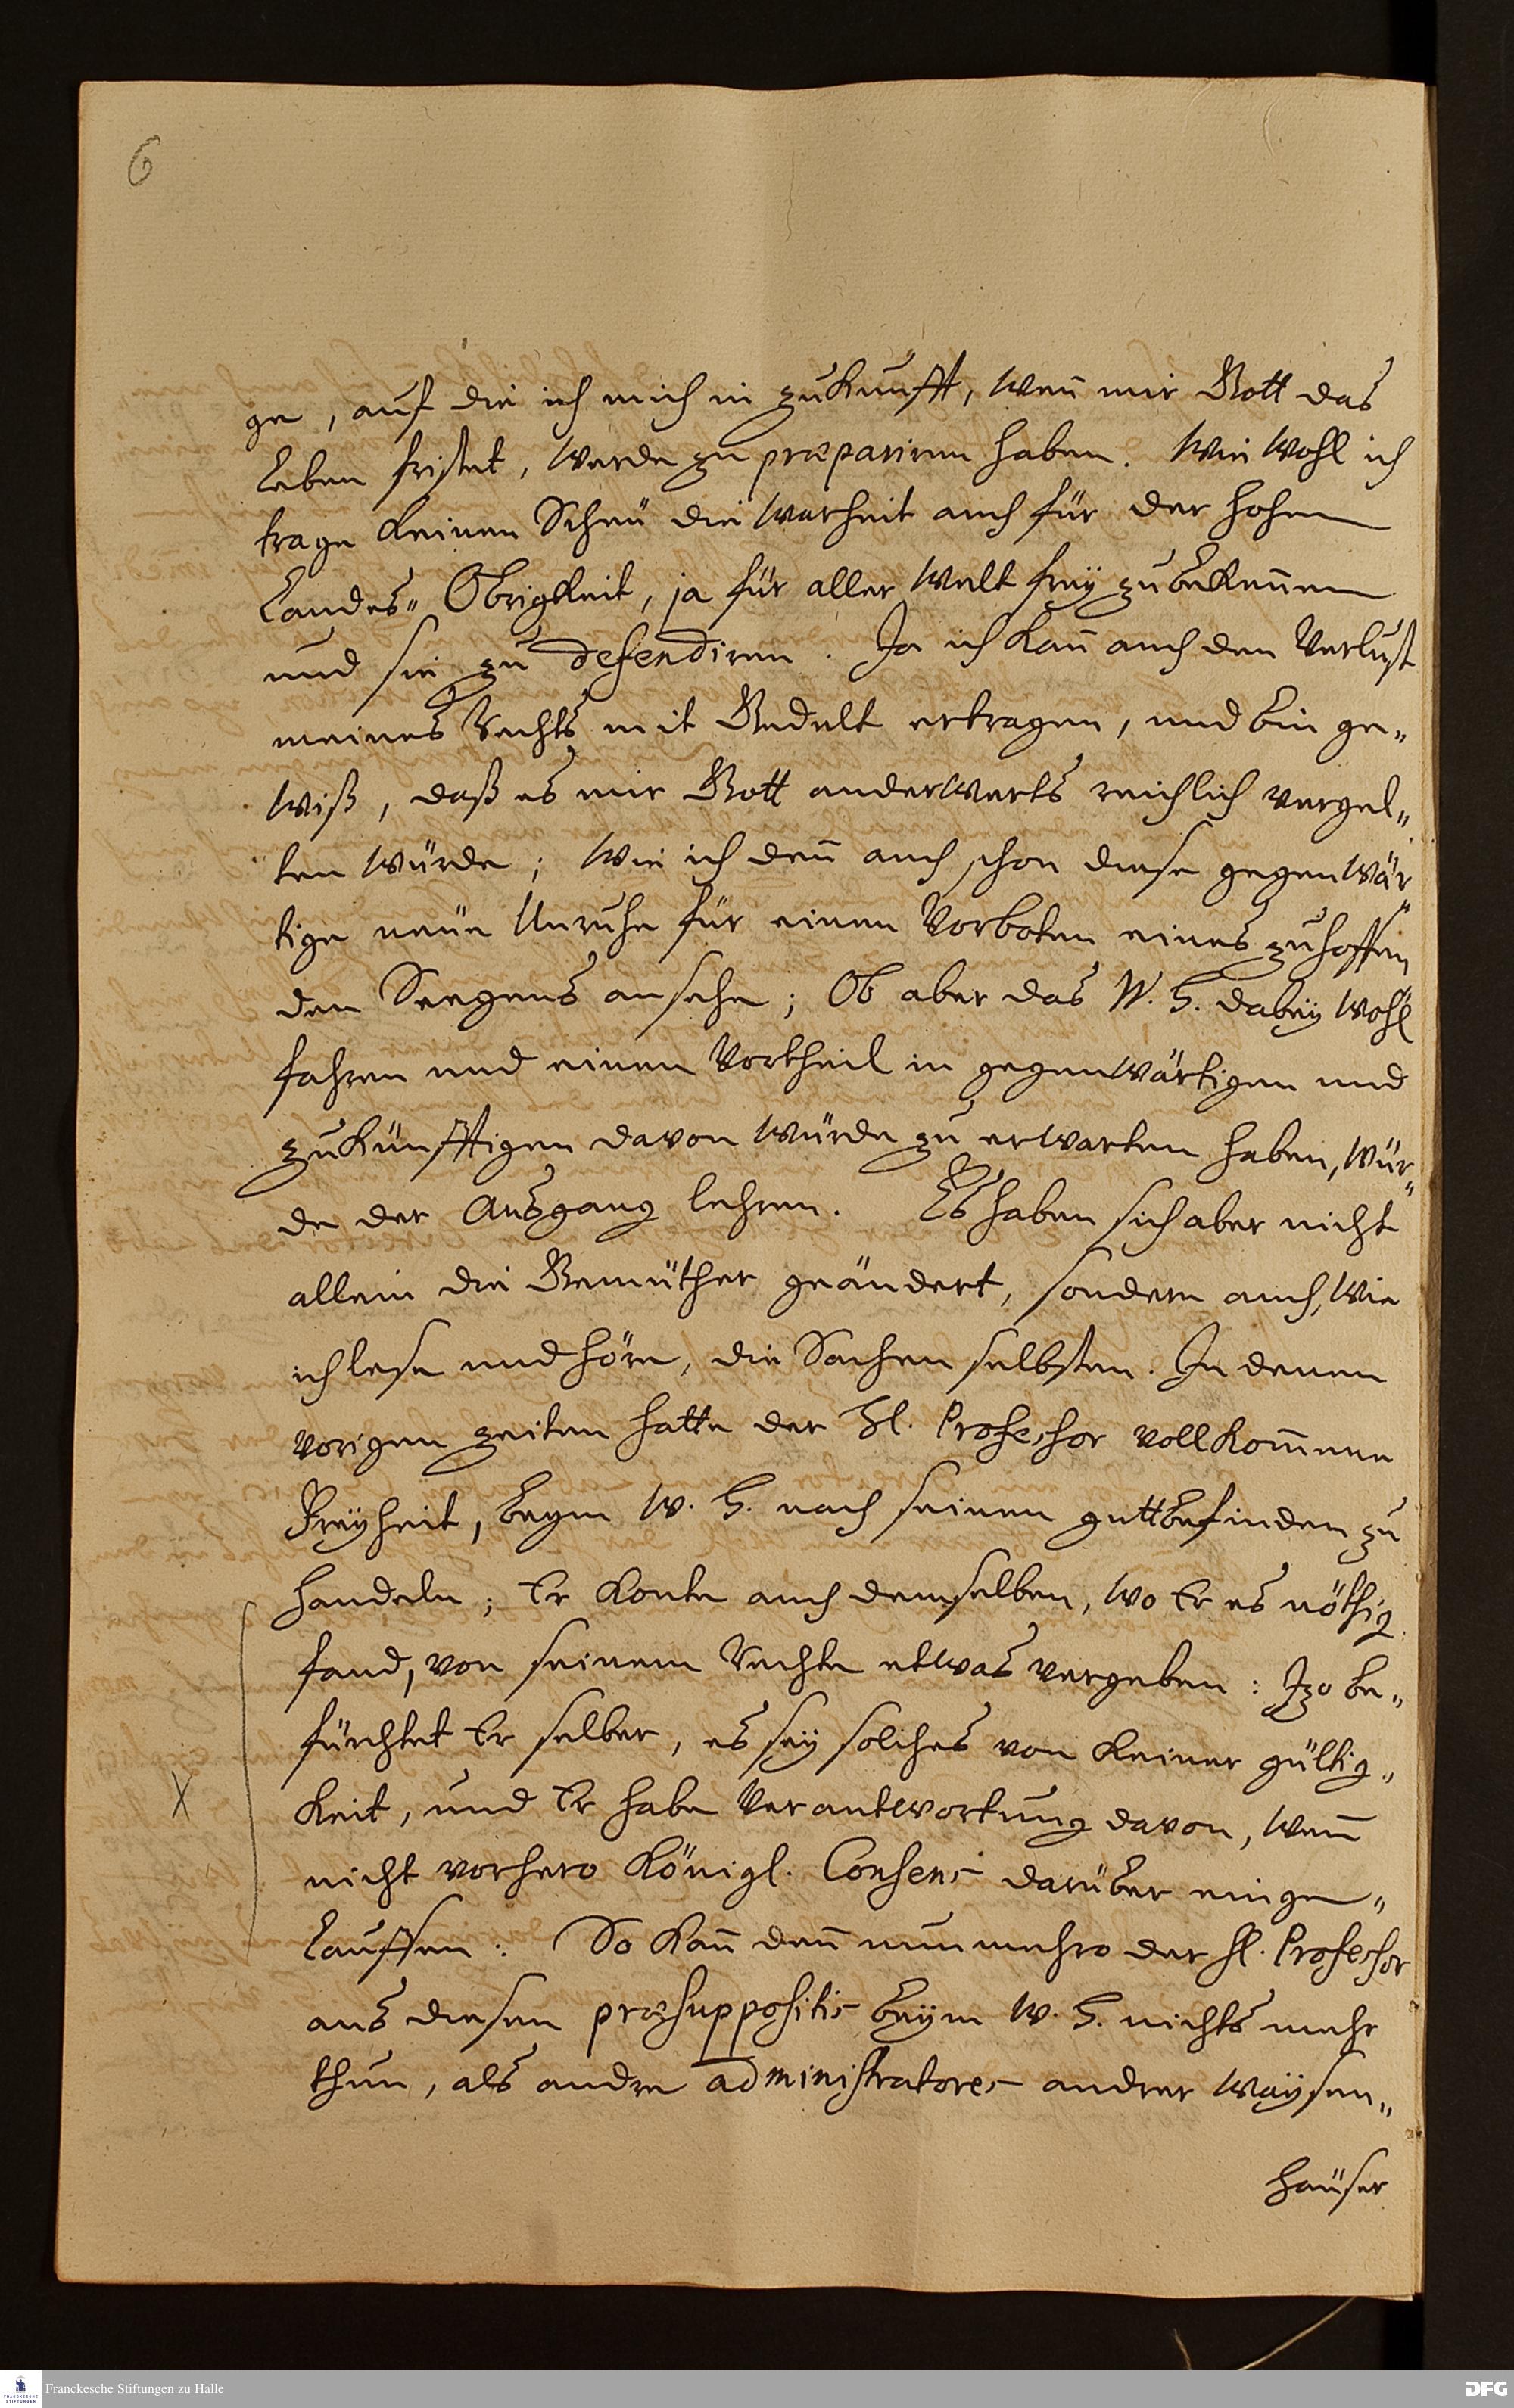 6
ge, auf die ich mich in zukunfft, weñ mir Gott das
Leben fristet, werde zu præpariren haben. Wie wohl ich
trage keinen Scheü die warheit auch für der hohen
Landes„ Obrigkeit, ja für aller Welt freÿ zu bekeñen
und sie zu defendiren. Ja ich kañ auch den Verlust
meines Rechts mit Gedult ertragen, und bin ge„
wiß, daß es mir Gott anderwerts reichlich vergel„
ten würde; Wie ich deñ auch schon diese gegenwär„
tige neüe Unruhe für einen Vorboten eines zuhoffen„
den Seegens ansehe; Ob aber das W. H. dabeÿ wohl
fahren und einen Vortheil in gegenwärtigen und
zukünfftigen davon würde zu erwarten haben, wür„
de der Ausgang lehren. Es haben sich aber nicht
allein die Gemüther geändert, sondern auch, wie
ich lese und höre, die Sachen selbsten. In denen
vorigen zeiten hatte der Hl. Professor vollkom̃ene
Freÿheit, beym W. H. nach seinen guttbefinden zu
handeln; Er konte auch demselben, wo Er es nöthig
fand, von seinem Rechte etwas vergeben: Izo be„
fürchtet Er selber, es seÿ solches von keiner gültig„
keit, und Er habe Verantwortung davon, weñ
nicht vorhero Königl. Consens darüber einge„
lauffen: So kañ deñ nunmehro der Hl. Professor
aus diesen præsuppositis beÿm W. H. nichts mehr
thun, als andre administratores andrer Waÿsen„
häuser
X
Franckesche Stiftungen zu Halle
FRANCKESCHE STIFTUNGEN
DFG